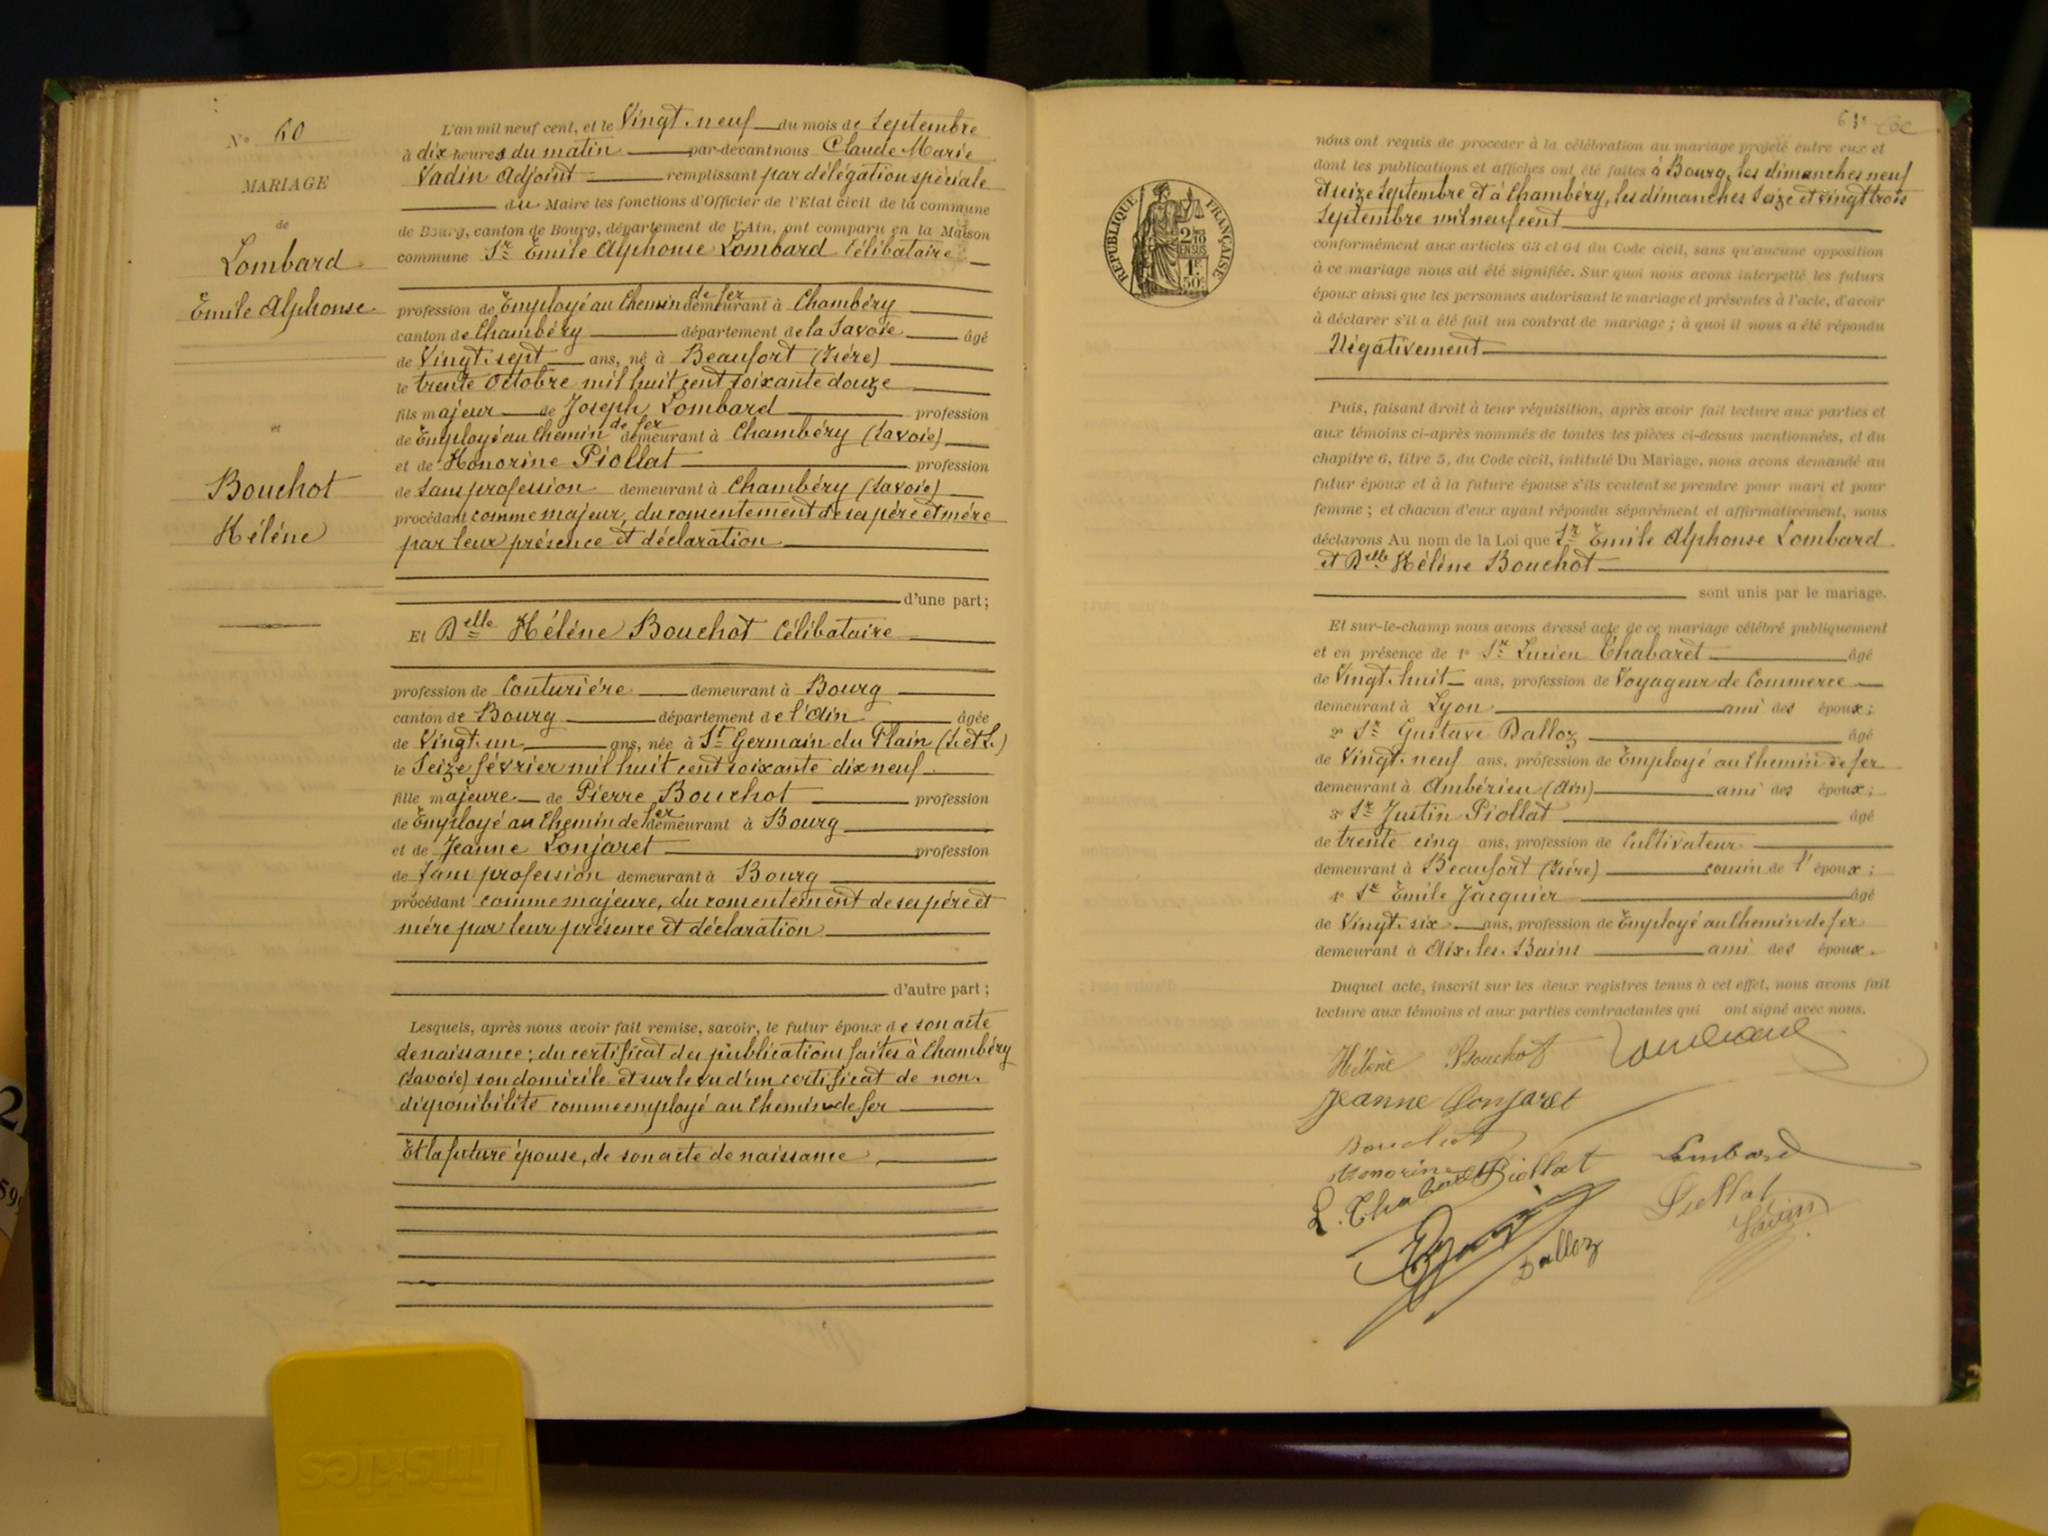 N° 60
MARIAGE
de
Lombard
Emile Alphonse
et
Bouchot
Hélène
L'an mil neuf cent, et le Vingt-neuf du mois de Septembre
à dix heures du matin par-devant nous Claude Marie
Vadin Adjoint remplissant par délégation spéciale
du Maire les fonctions d'Officier de l'Etat civil de la commune
de Bourg, canton de Bourg, département de l'Ain, ont comparu en la Maison
commune Sr Emile Alphonse Lombard Célibataire
profession de Employé au Chemin de fer demeurant à Chambéry
canton de Chambéry département de la Savoie âgé
de Vingt-sept ans, né à Beaufort (Isére)
le trente Octobre mil huit cent soixante douze
fils majeur de Joseph Lombard profession
de Employé au Chemin de fer demeurant à Chambéry (Savoie)
et de Honorine Piollat profession
de Sans profession demeurant à Chambéry (Savoie)
procédant comme majeur, du consentement de ses père et mère
par leur présence et déclaration
d'une part;
Et Delle Hélène Bouchot Célibataire
profession de Couturière demeurant à Bourg
canton de Bourg département de l'Ain âgée
de Vingt-un ans, née à St Germain du Plain (S. et L.)
le Seize février mil huit cent soixante dix neuf
fille majeure de Pierre Bouchot profession
de Employé au Chemin de fer demeurant à Bourg
et de Jeanne Lonjaret profession
de Sans profession demeurant à Bourg
procédant comme majeure, du consentement de ses père et
mère par leur présence et déclaration
d'autre part;
Lesquels, après nous avoir fait remise, savoir, le futur époux de son acte
de naissance; du certificat des publications faites à Chambéry
(Savoie) son domicile et sur le vu d'un certificat de non-
disponibilité comme employé au Chemin de fer
Et la future épouse, de son acte de naissance
RÉPUBLIQUE FRANÇAISE
2/10
EN SUS
1F
50c
nous ont requis de procéder à la célébration du mariage projeté entre eux et
dont les publications et affiches ont été faites à Bourg, les dimanches neuf
et seize Septembre et à Chambéry, les dimanches Seize et vingt trois
Septembre mil neuf cent
conformément aux articles 63 et 64 du Code civil, sans qu'aucune opposition
à ce mariage nous ait été signifiée. Sur quoi nous avons interpellé les futurs
époux ainsi que les personnes autorisant le mariage et présentes à l'acte, d'avoir
à déclarer s'il a été fait un contrat de mariage; à quoi il nous a été répondu
Négativement
Puis, faisant droit à leur réquisition, après avoir fait lecture aux parties et
aux témoins ci-après nommés de toutes les pièces ci-dessus mentionnées, et du
chapitre 6, titre 5, du Code civil, intitulé Du Mariage, nous avons demandé au
futur époux et à la future épouse s'ils veulent se prendre pour mari et pour
femme; et chacun d'eux ayant répondu séparément et affirmativement, nous
déclarons Au nom de la Loi que Sr Emile Alphonse Lombard
et Delle Hélène Bouchot
sont unis par le mariage.
Et sur-le-champ nous avons dressé acte de ce mariage célébré publiquement
et en présence de 1° Sr Lucien Chabaret âgé
de Vingt-huit ans, profession de Voyageur de Commerce
demeurant à Lyon ami des époux;
2° Sr Gustave Dalloz âgé
de Vingt-neuf ans, profession de Employé au Chemin de fer
demeurant à Ambérieu (Ain) ami des époux;
3° Sr Justin Piollat âgé
de trente cinq ans, profession de Cultivateur
demeurant à Beaufort (Isére) cousin de l'époux;
4° Sr Emile Jacquier âgé
de Vingt-six ans, profession de Employé au Chemin de fer
demeurant à Aix-les-Bains ami des époux.
Duquel acte, inscrit sur les deux registres tenus à cet effet, nous avons fait
lecture aux témoins et aux parties contractantes qui ont signé avec nous.
Hélène Bouchot Lombard
Jeanne Lonjaret
Bouchot
Honorine Piollat Lombard
L. Chabaret Piollat
Dalloz